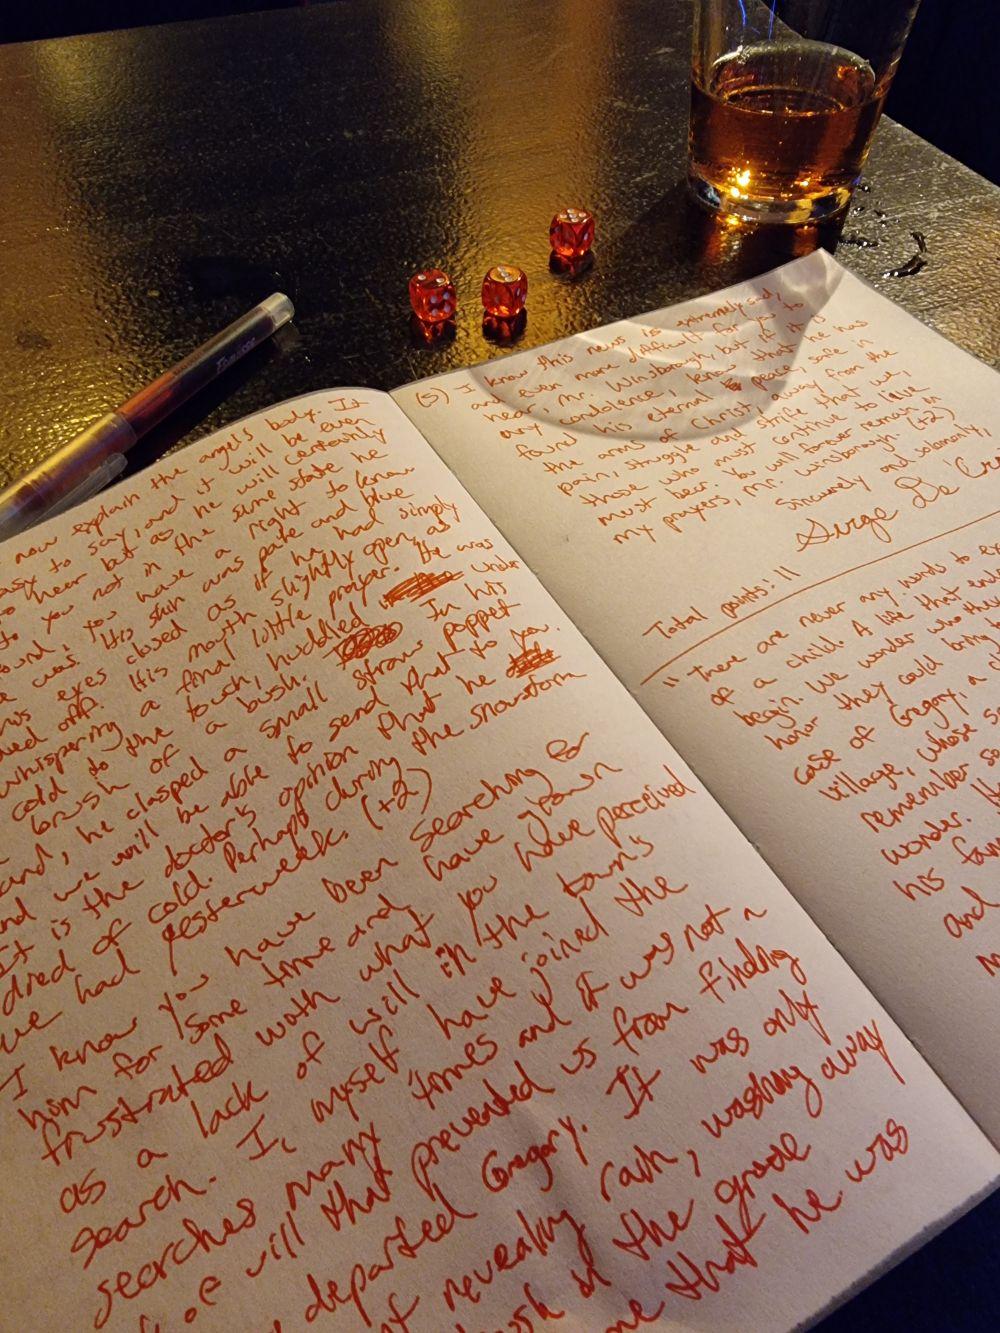 now explain the angel's body. It
easy to say, and it will be even
to hear but as he will certainly
to you not in the same state he
found, you have a right to know
he was. His skin was pale and blue
his eyes closed as if he had simply
off. His mouth slightly open, as
whispering a final little prayer. He was
cold to the touch, huddled under
brush of a bush. In his
hand, he clasped a small straw poppet
and we will be able to send that to you.
It is the doctor's opinion that he
died of cold. Perhaps during the snowstorm
we had yesterweek. (+2)
I know you have been searching for
him for some time and have grown
frustrated with what you have perceived
as a lack of will in the town's
search. I, myself have joined the
searches many times and it was not a
of will that prevented us from finding
departed Gregory. It was only
revealing rain, washing away
in the grade
me that he was
(5) I know this news is extremely sad,
and even more difficult for you to
hear, Mr. Winsborough, but if it is
any condolence, I know that he has
found his eternal peace, safe in
the arms of Christ, away from the
pain, struggle and strife that we,
those who must continue to live
must bear. You will forever remain in
my prayers, Mr. Winsborough (+2)
Sincerely and solemnly,
Serge De'
Total points: 11
"There are never any words to
of a child. A life that
begin. We wonder who
honor they could bring
case of Gregory, a
village, whose
remember
wonder.
his
and
Tombow